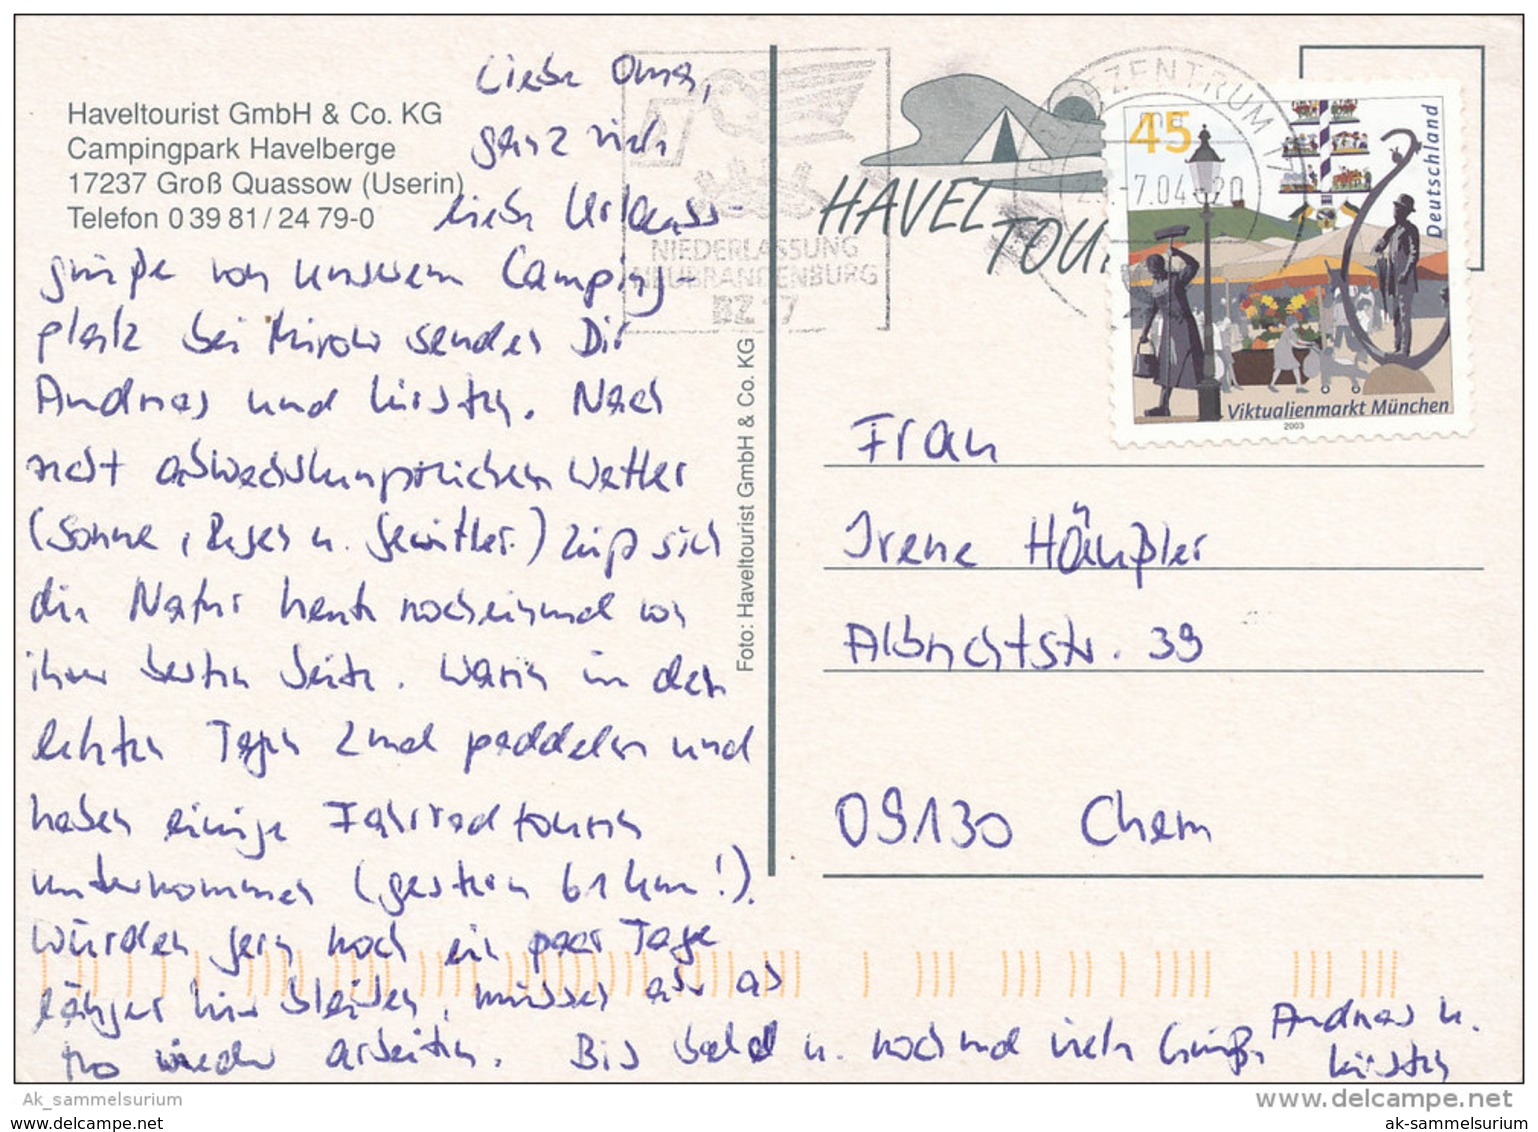 Haveltourist GmbH & Co. KG
Campingpark Havelberge
17237 Groß Quassow (Userin)
Telefon 0 39 81 / 24 79-0
Liebe Oma,
ganz viele
liebe Urlaubs-
grüße von unserem Camping-
platz bei Mirow senden Dir
Andreas und Kirsten. Nach
recht abwechslungsreichem Wetter
(Sonne, Regen u. Gewitter.) zeigt sich
die Natur heute noch einmal von
ihrer besten Seite. Waren in den
letzten Tagen 2mal paddeln und
haben einige Fahrradtouren
unternommen (gestern 61 km!).
Würden gern noch ein paar Tage
länger hier bleiben, müssen aber ab
Mo wieder arbeiten. Bis bald u. nochmal viele Grüße
Andreas u.
Kirsten
Foto: Haveltourist GmbH & Co. KG
NIEDERLASSUNG
NEUBRANDENBURG
BZ 17
HAVEL
TOU
BRIEFZENTRUM 17
-7.04-20
45
Deutschland
Viktualienmarkt München
2003
Frau
Irene Häußler
Albrechtstr. 39
09130 Chem
Ak_sammelsurium
www.delcampe.net
www.delcampe.net
ak-sammelsurium